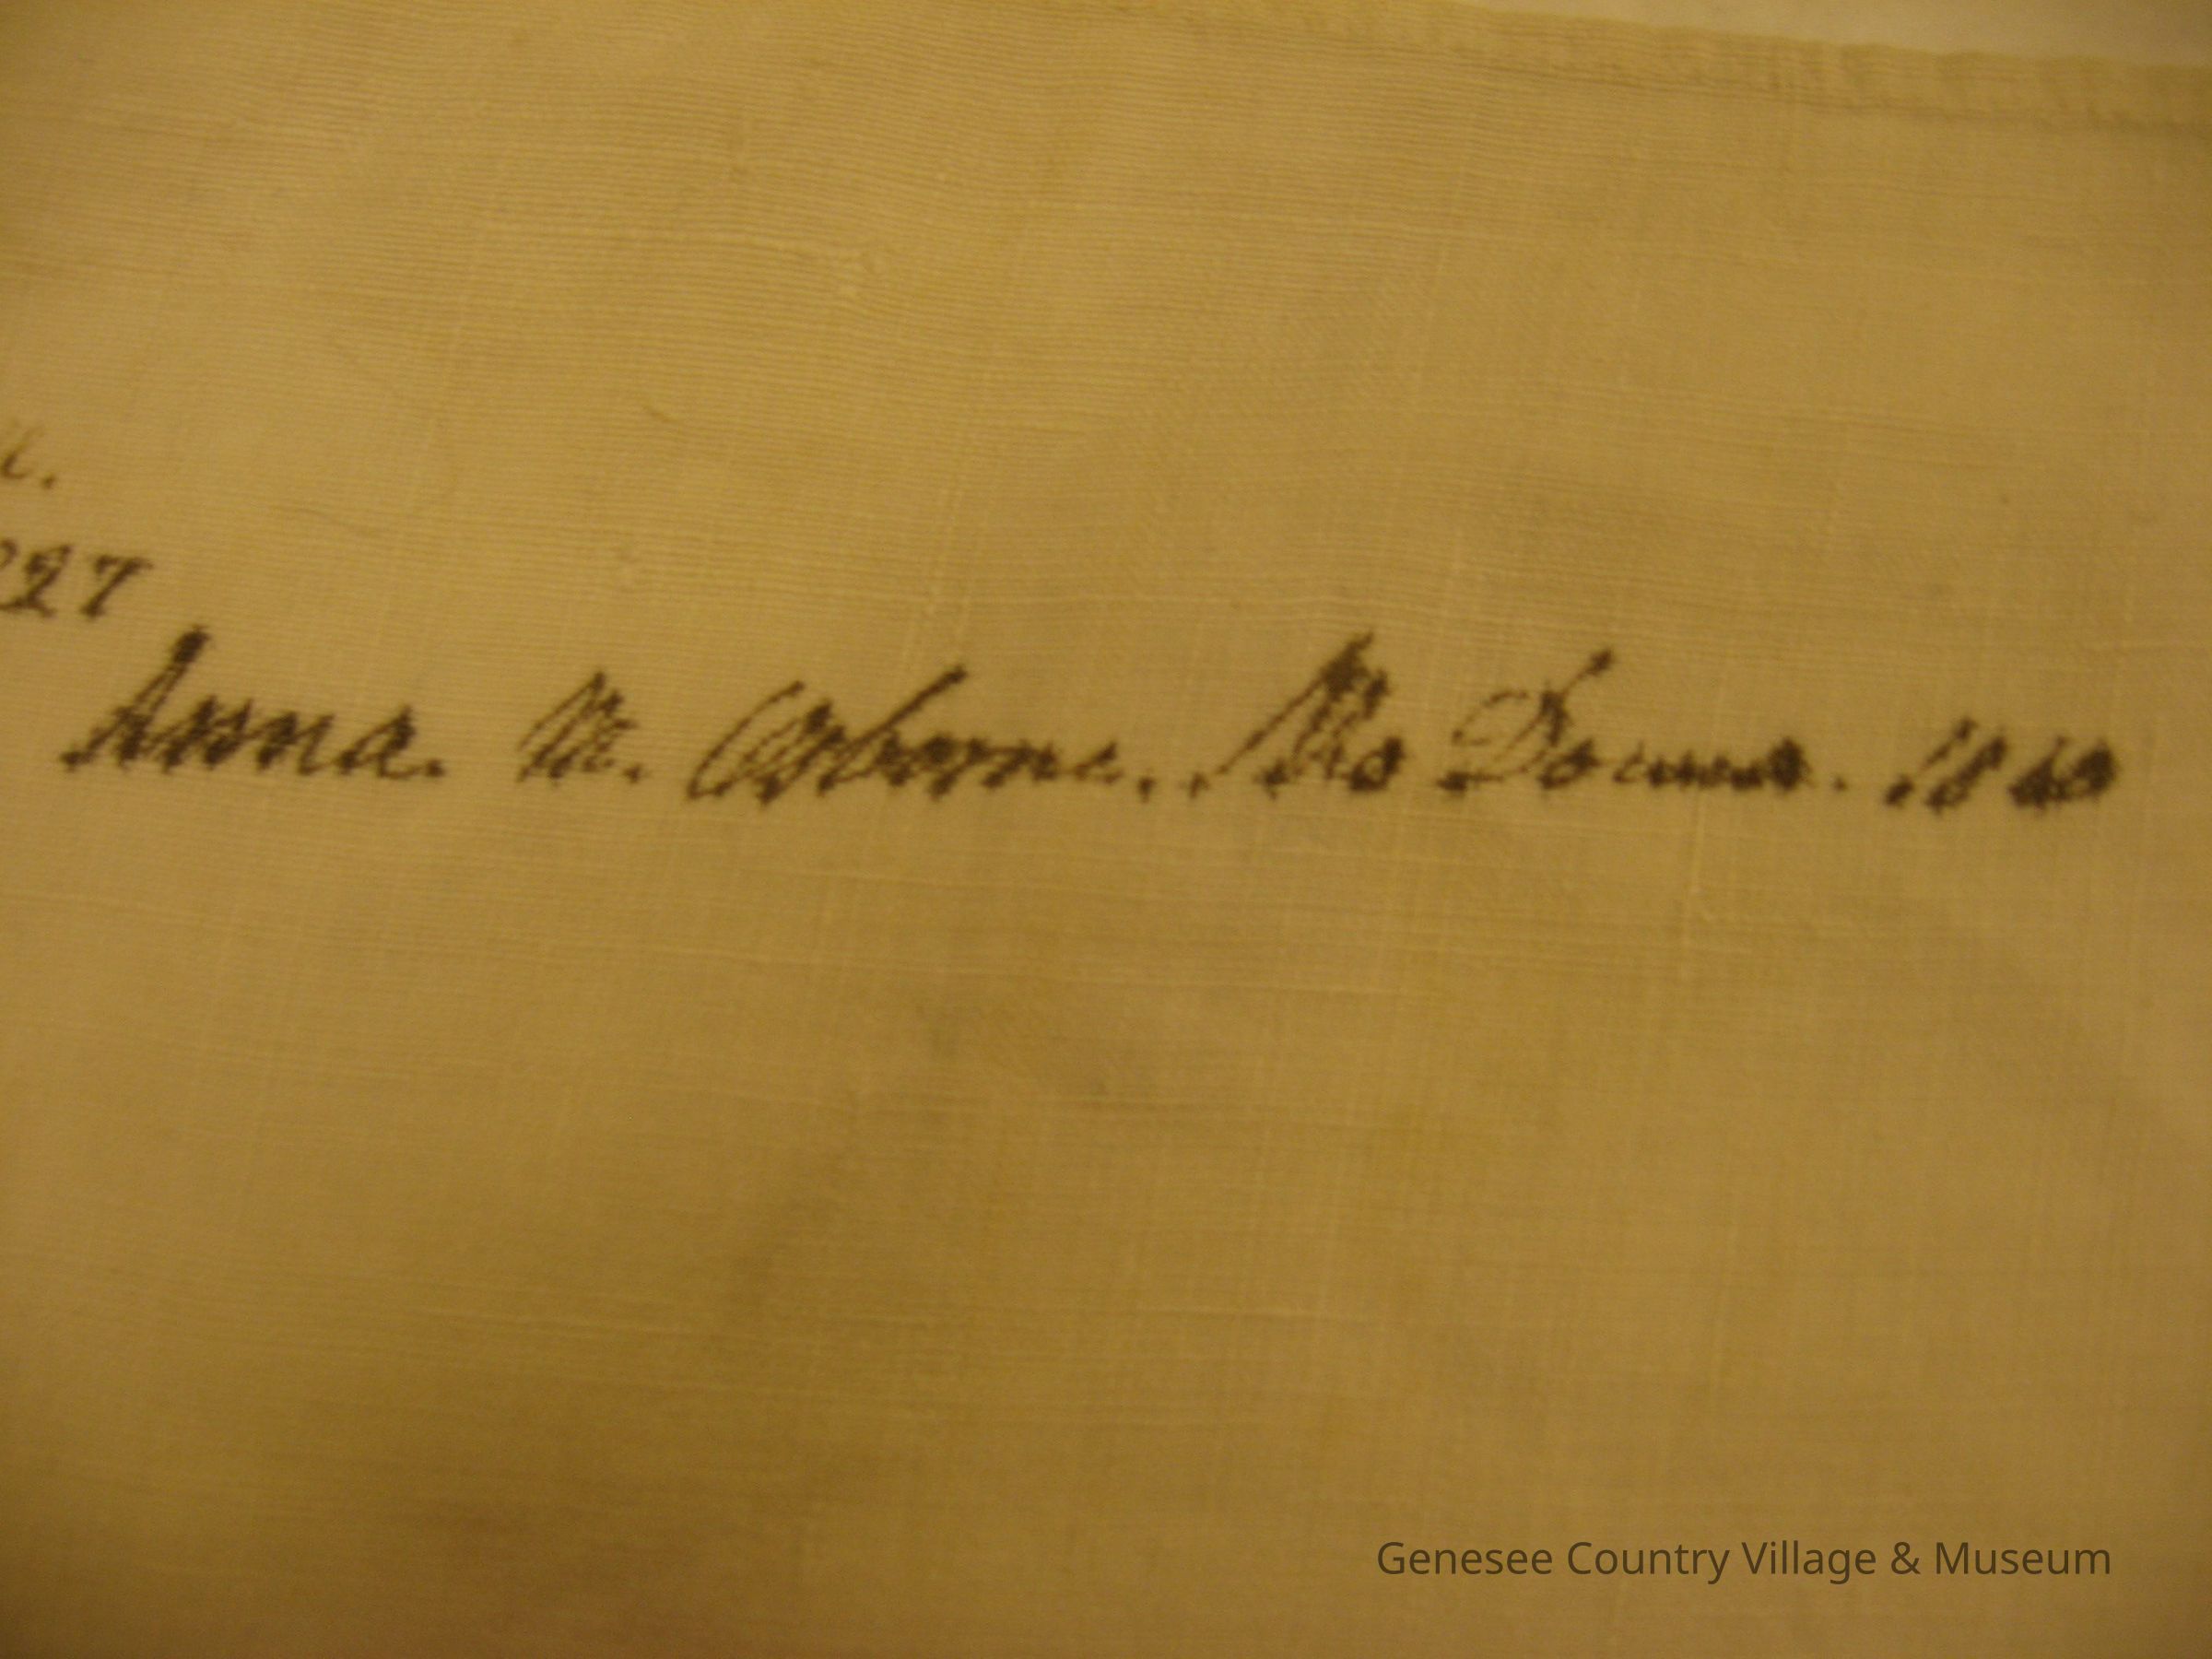 27
Anna. M. Osborne. 1860
Genesee Country Village & Museum